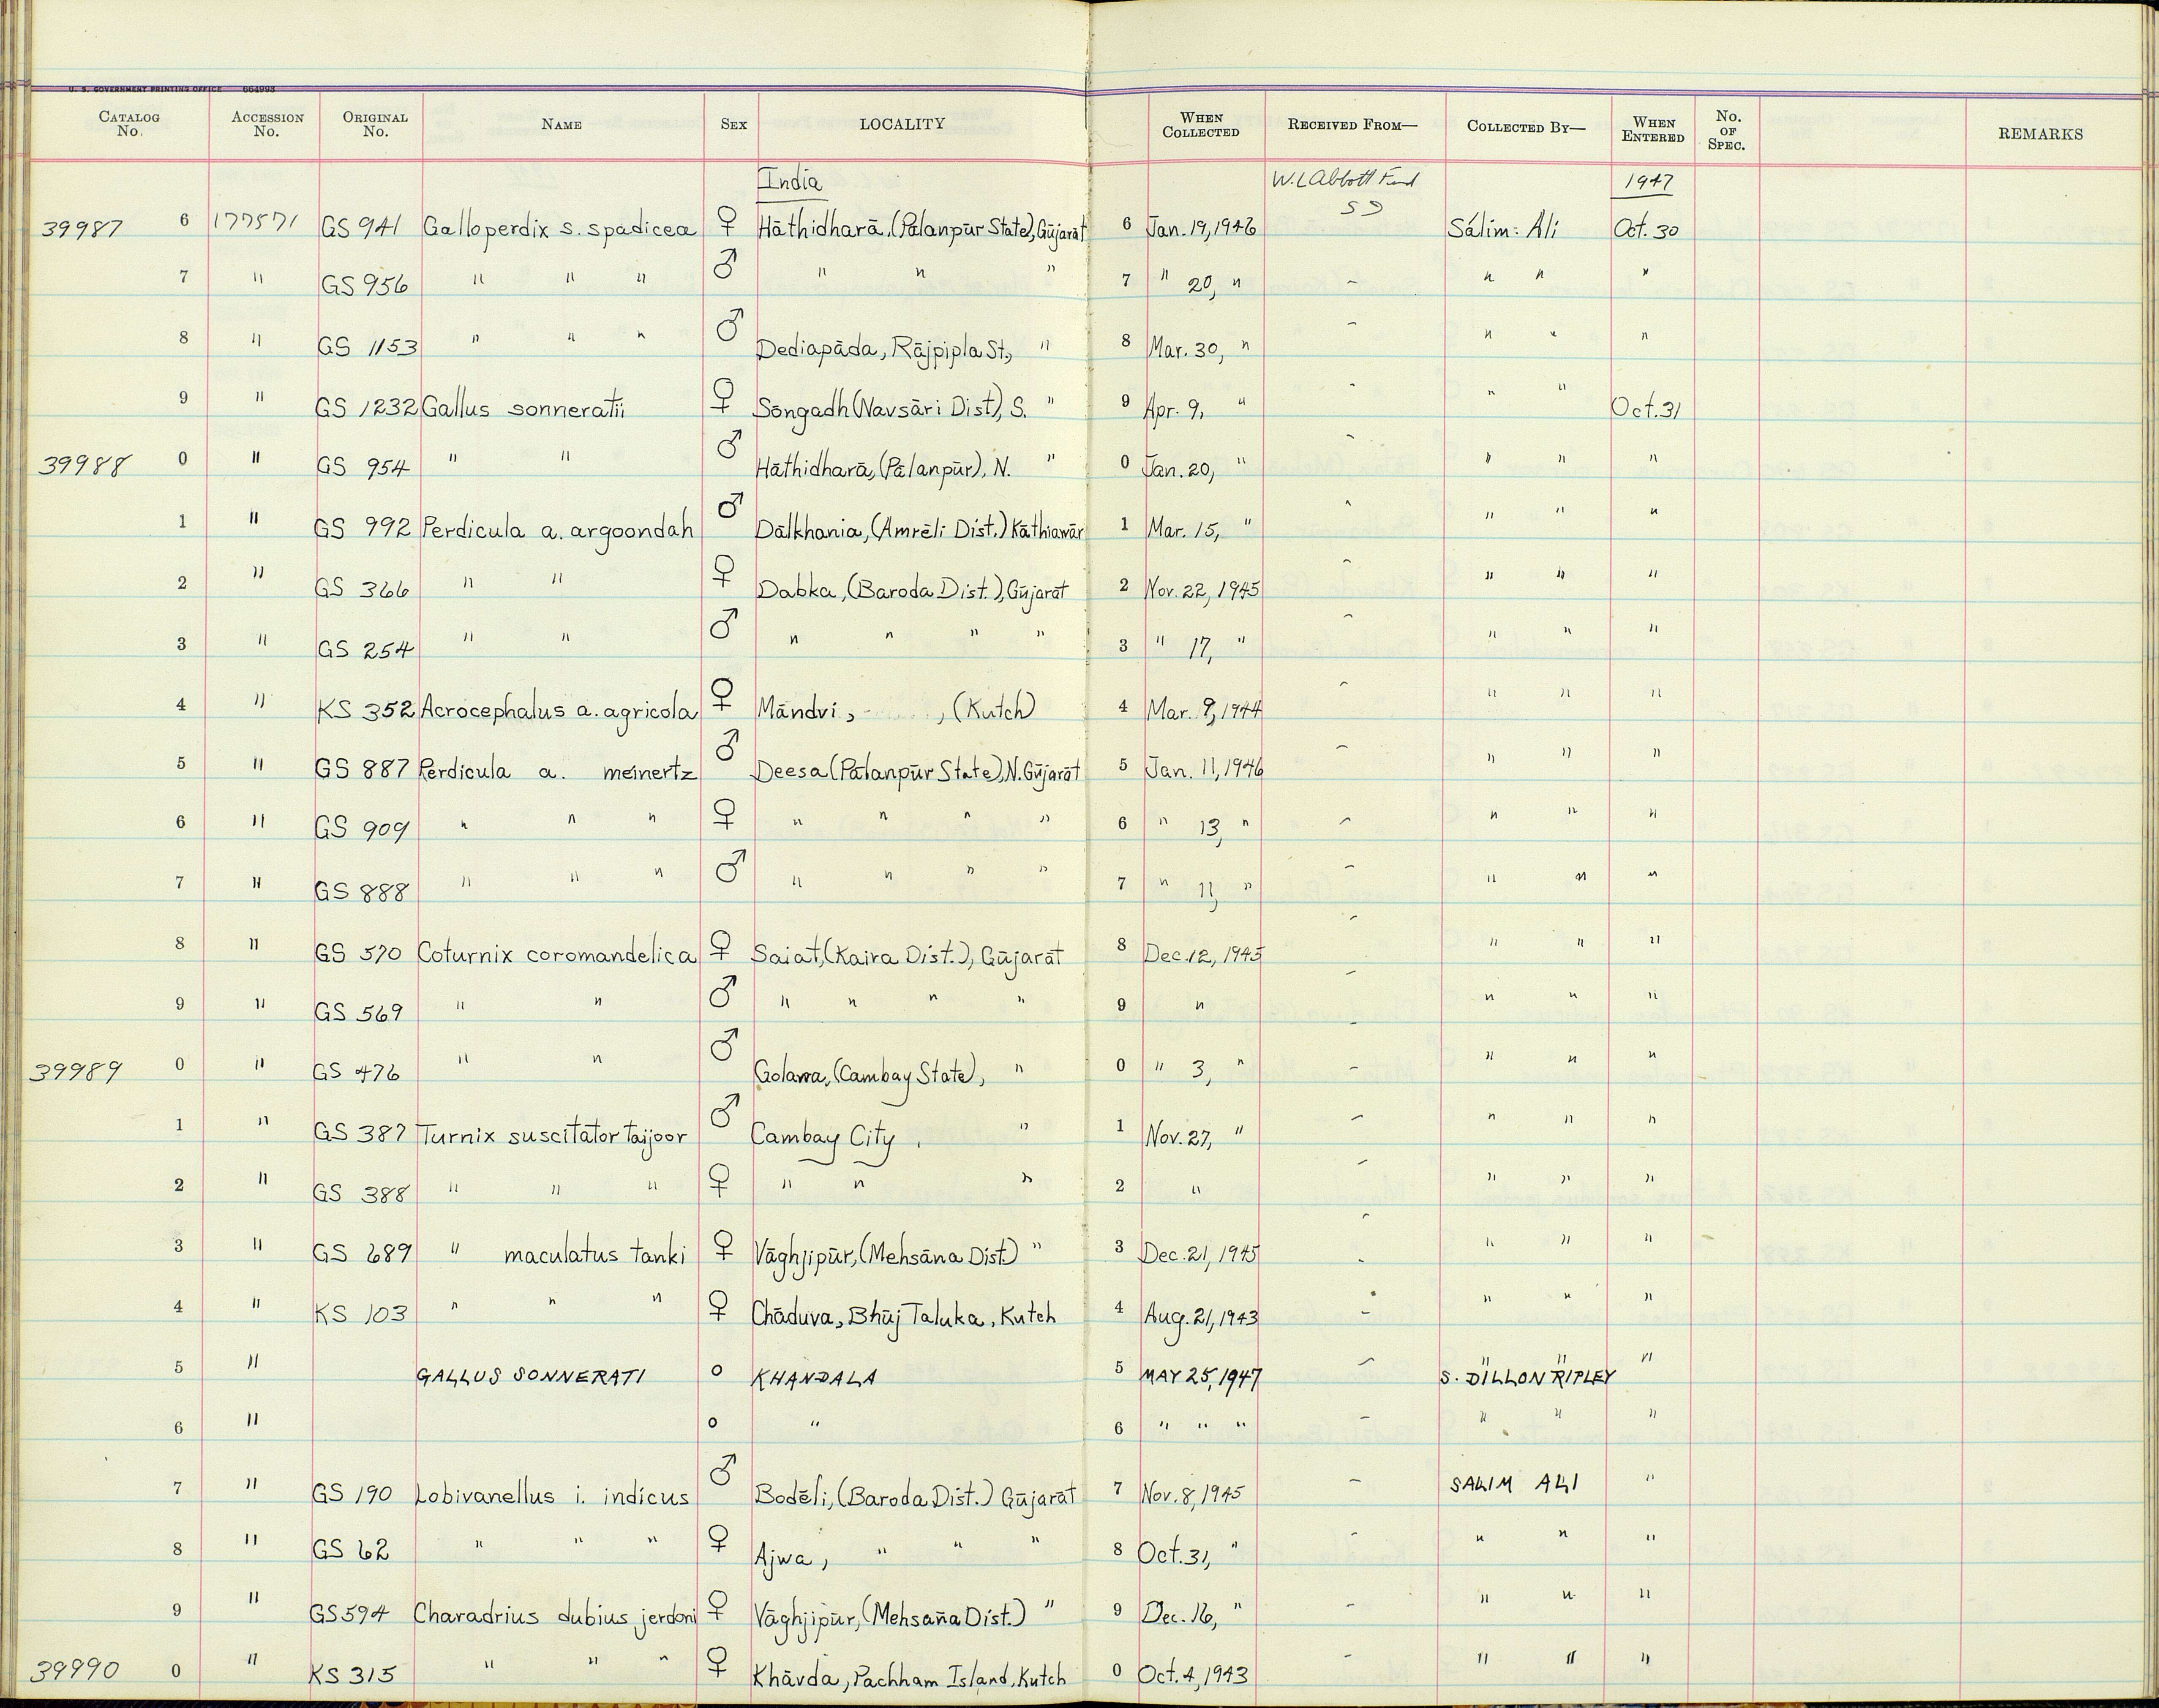 U. S. GOVERNMENT PRINTING OFFICE 664998
CATALOG No. ACCESSION No. ORIGINAL No. NAME SEX LOCALITY WHEN COLLECTED RECEIVED FROM— COLLECTED BY— WHEN ENTERED No. OF SPEC. REMARKS
India W. L Abbott Fund 1947
39987 6 177571 GS 941 Galloperdix s. spadicea ♀ Hāthidharā, (Palanpūr State), Gūjarāt 6 Jan. 19, 1946 Sálim: Ali Oct. 30
7 " GS 956 " " " ♂ " " " 7 " 20, " " " "
8 " GS 1153 " " " ♂ Dediapāda, Rājpipla St., " 8 Mar. 30, " " " "
9 " GS 1232 Gallus sonneratii ♀ Sōngadh (Navsāri Dist), S. " 9 Apr. 9, " " " Oct. 31
39988 0 " GS 954 " " ♂ Hāthidharā, (Pālanpūr), N. " 0 Jan. 20, " " " "
1 " GS 992 Perdicula a. argoondah ♂ Dālkhania, (Amrēli Dist.) Kāthiawār 1 Mar. 15, " " " "
2 " GS 366 " " ♀ Dabka, (Baroda Dist.), Gūjarāt 2 Nov. 22, 1945 " " "
3 " GS 254 " " ♂ " " " " 3 " 17, " " " "
4 " KS 352 Acrocephalus a. agricola ♀ Māndvi, , (Kutch) 4 Mar. 9, 1944 " " "
5 " GS 887 Perdicula a. meinertz ♂ Deesa (Pālanpūr State), N. Gūjarāt 5 Jan. 11, 1946 " " "
6 " GS 909 " " " ♀ " " " " 6 " 13, " " " "
7 " GS 888 " " " ♂ " " " " 7 " 11, " " " "
8 " GS 570 Coturnix coromandelica ♀ Saiat, (Kaira Dist.), Gūjarāt 8 Dec. 12, 1945 " " "
9 " GS 569 " " ♂ " " " " 9 " " " "
39989 0 " GS 476 " " ♂ Golana, (Cambay State), " 0 " 3, " " " "
1 " GS 387 Turnix suscitator taijoor ♂ Cambay City, " 1 Nov. 27, " " " "
2 " GS 388 " " " ♀ " " " 2 " " " "
3 " GS 689 " maculatus tanki ♀ Vāghjipūr, (Mehsāna Dist.) " 3 Dec. 21, 1945 " " "
4 " KS 103 " " " ♀ Chāduva, Bhūj Taluka, Kutch 4 Aug. 21, 1943 " " "
5 " GALLUS SONNERATI o KHANDALA 5 MAY 25, 1947 S. DILLON RIPLEY "
6 " o " 6 " " " " " "
7 " GS 190 Lobivanellus i. indicus ♂ Bodēli, (Baroda Dist.) Gūjarāt 7 Nov. 8, 1945 SALIM ALI "
8 " GS 62 " " " ♀ Ajwa, " " " 8 Oct. 31, " " " "
9 " GS 594 Charadrius dubius jerdoni ♀ Vāghjipūr, (Mehsāna Dist.) " 9 Dec. 16, " " " "
39990 0 " KS 315 " " " ♀ Khāvda, Pachham Island, Kutch 0 Oct. 4, 1943 " " "